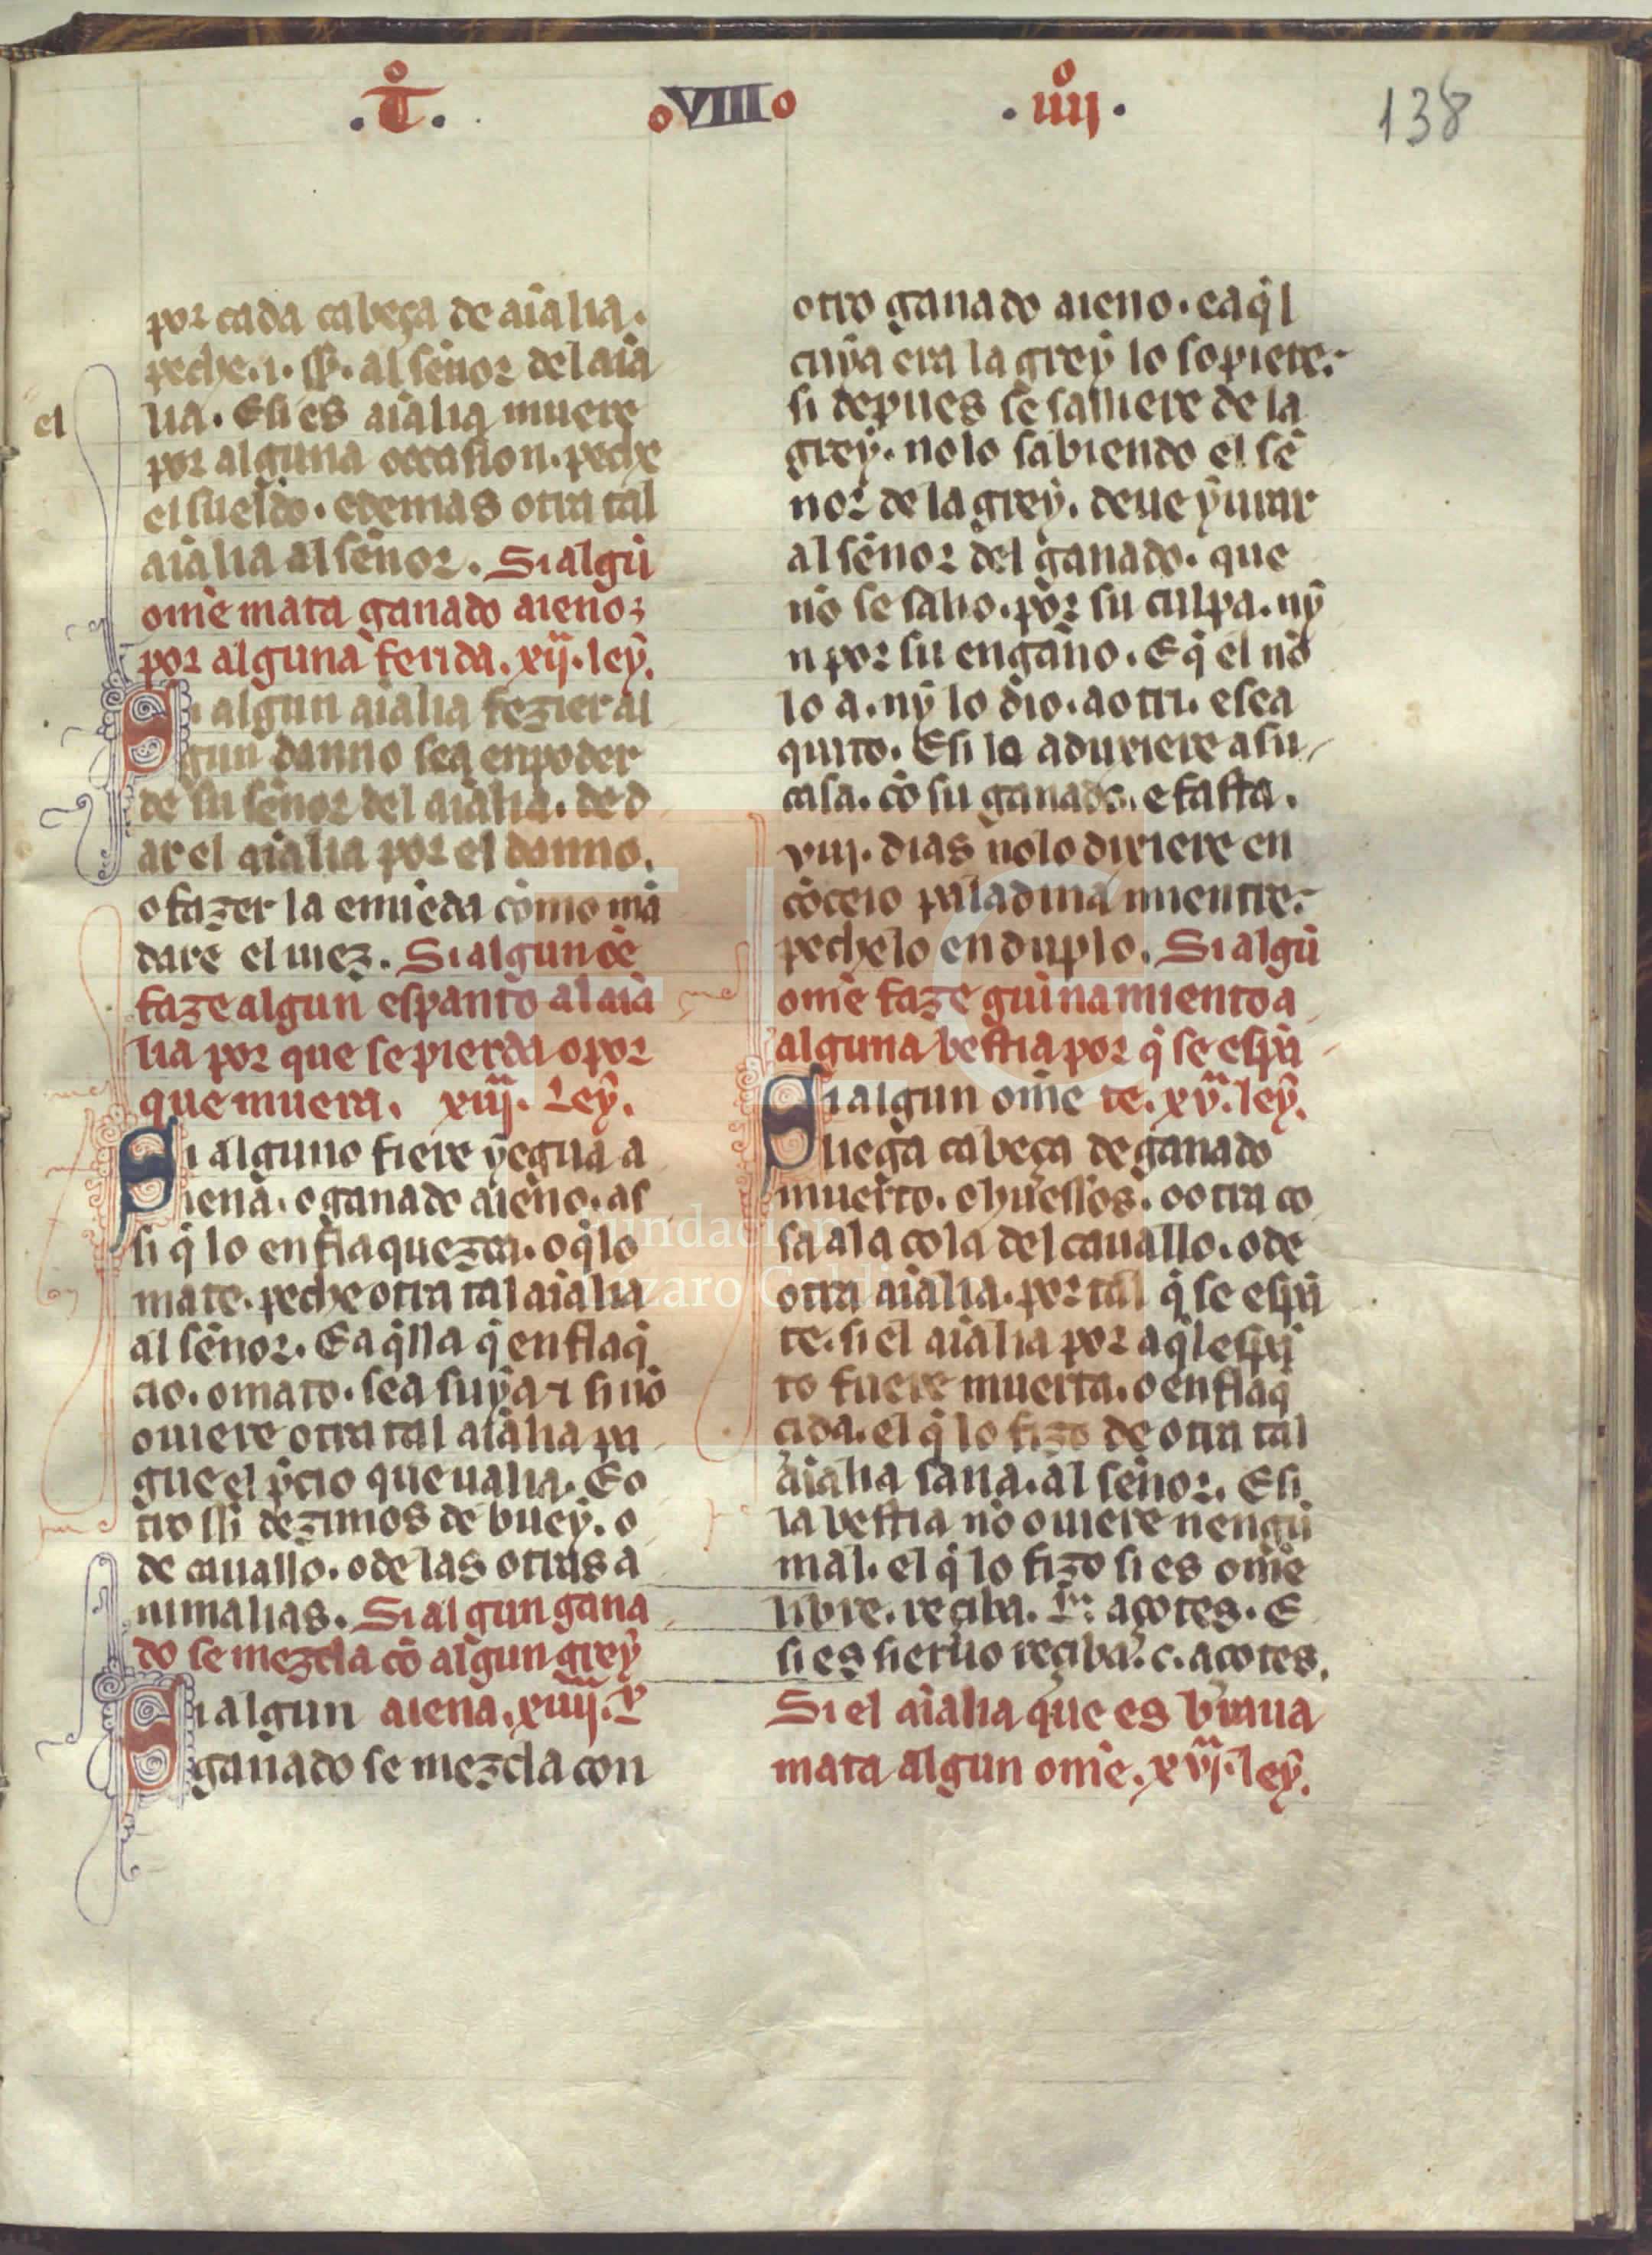 .T͛o.
oVIIIo
.iiijº.
138
por cada cabeça de aīalia.
peche .i. sł. al señor del aīa
lia. E si es aīalia muere
el
por alguna occasion. peche
el sueldo. edemas otra tal
aīalia al señor. Si algū
om̄e mata ganado aieno;
por alguna ferida. xij. ley.
Si algun aīalia fezier al
gun danno sea en poder
de su señor del aīalia. de d
ar el aīalia por el danno.
o fazer la emiēda cōmo mā
dare el iuez. Si algun oē
faze algun espanto al aīa
lia por que se pierda o por
que muera. xiij. Ley.
Si alguno fiere yegua a
iena. o ganado aieno. as
si q̄ lo enflaquezca. o q̄ lo
mate. peche otra tal aīalia
al señor. E aq̄lla q̄ enflaq̄
cio. o mato. sea suya ⁊ si nō
ouiere otra tal aīalia pa
gue el p̄cio que ualia. E o
tro ssi dezimos de buey. o
de cauallo. o de las otras a
nimalias. Si algun gana
do se mezcla cō algun grey
Si algun aiena. xiiij. L̄
ganado se mezcla con
otro ganado aieno. e aq̄l
cuya era la grey lo sopiere.
si depues se salliere de la
grey. no lo sabiendo el se
nor de la grey. deue yurar
al señor del ganado. que
nō se salio. por su culpa. ny
n por su engaño. E q̄ el nō
lo a. ny lo dio. a otri. e sea
quito. E si lo aduxiere a su
casa. cō su ganado. e fasta.
viij. dias nōlo dixiere en
cōceio paladina miientre.
pechelo en duplo. Si algū
om̄e faze guinamiento a
alguna bestia por q̄ se espā
Si algun om̄e te. xv. ley.
liega cabeça de ganado
muerto. o huessos. o otra co
sa a la cola del cauallo. o de
otra aīalia. por tal q̄ se espā
te. si el aīalia por aq̄l espā
to fuere muerta. o enflaq̄
cida. el q̄ lo fizo de otra tal
aīalia sana. al señor. E si
la bestia nō ouiere nengū
mal. el q̄ lo fizo si es om̄e
libre. reçiba. L. açotes. E
si es sieruo reçiba. c. açotes.
Si el aīalia que es braua
mata algun om̄e. xvj. ley.